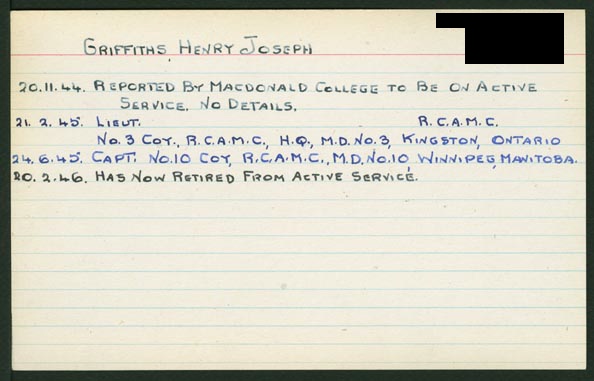 GRIFFITHS, HENRY JOSEPH
20.11.44. REPORTED BY MACDONALD COLLEGE TO BE ON ACTIVE
SERVICE. NO DETAILS.
21.2.45. LIEUT. R.C.A.M.C.
No.3 COY., R.C.A.M.C., H.Q., M.D. No.3, KINGSTON, ONTARIO
24.6.45. CAPT. No.10 COY, R.C.A.M.C., M.D. No.10 WINNIPEG, MANITOBA.
20.2.46. HAS NOW RETIRED FROM ACTIVE SERVICE.